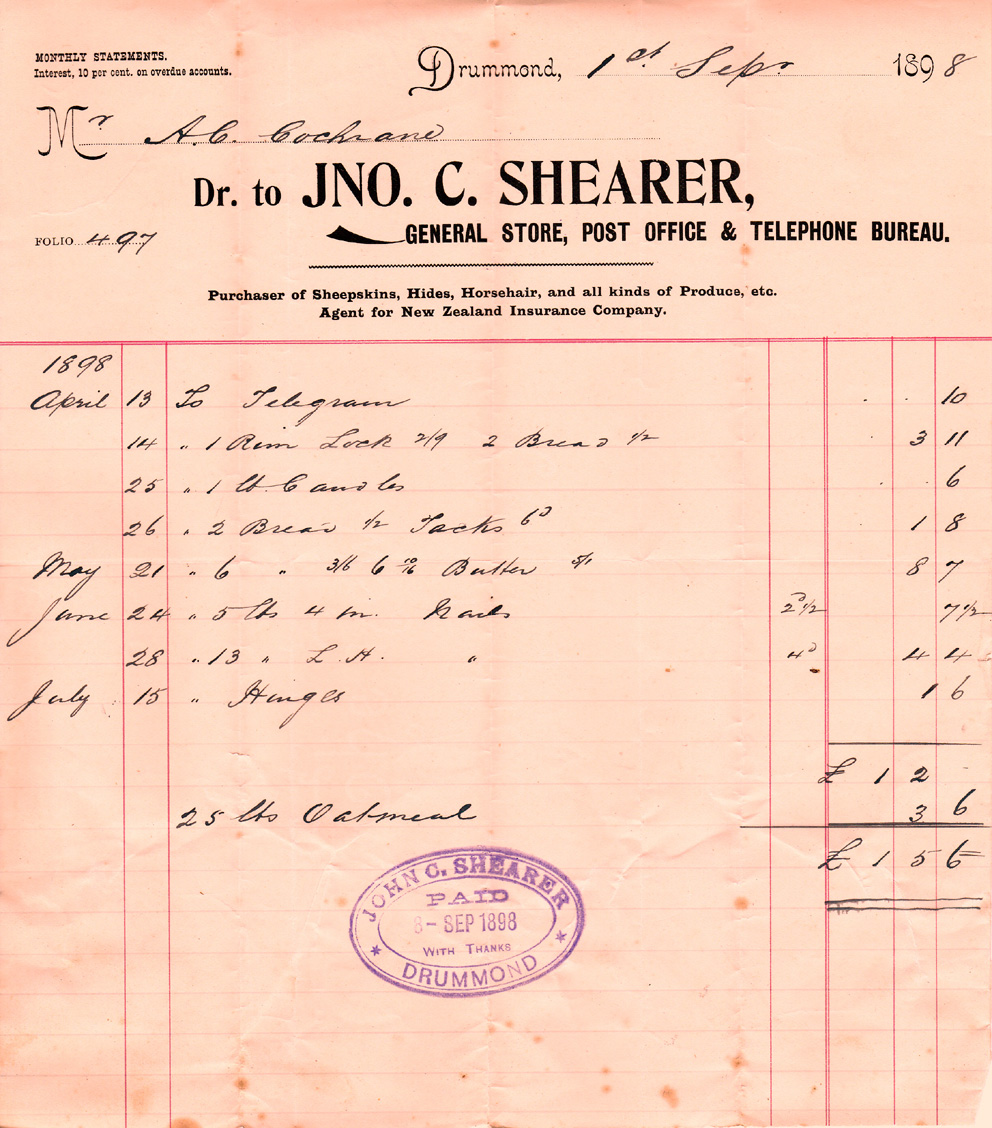 MONTHLY STATEMENTS.
Interest, 10 per cent. on overdue accounts.
Drummond, 1st Sepr 1898
Mr A.C. Cochrane
Dr. to JNO. C. SHEARER,
FOLIO 497
GENERAL STORE, POST OFFICE & TELEPHONE BUREAU.
Purchaser of Sheepskins, Hides, Horsehair, and all kinds of Produce, etc.
Agent for New Zealand Insurance Company.
1898
April 13 To Telegram 10
14 " 1 Rim Lock 2/9 2 Bread 1/2 3 11
25 " 1 lb Candles 6
26 " 2 Bread 1/2 Tacks 6d 1 8
May 21 " 6 " 3/6 6 Butter 5/1 8 7
June 24 " 5 lbs 4 in. Nails 7 1/2
28 " 13 " L.H. " 4d 4 4
July 15 " Hinges 1 6
£ 1 2 -
25 lbs Oatmeal 3 6
£ 1 5 6
JOHN C. SHEARER
PAID
8 - SEP 1898
WITH THANKS
DRUMMOND